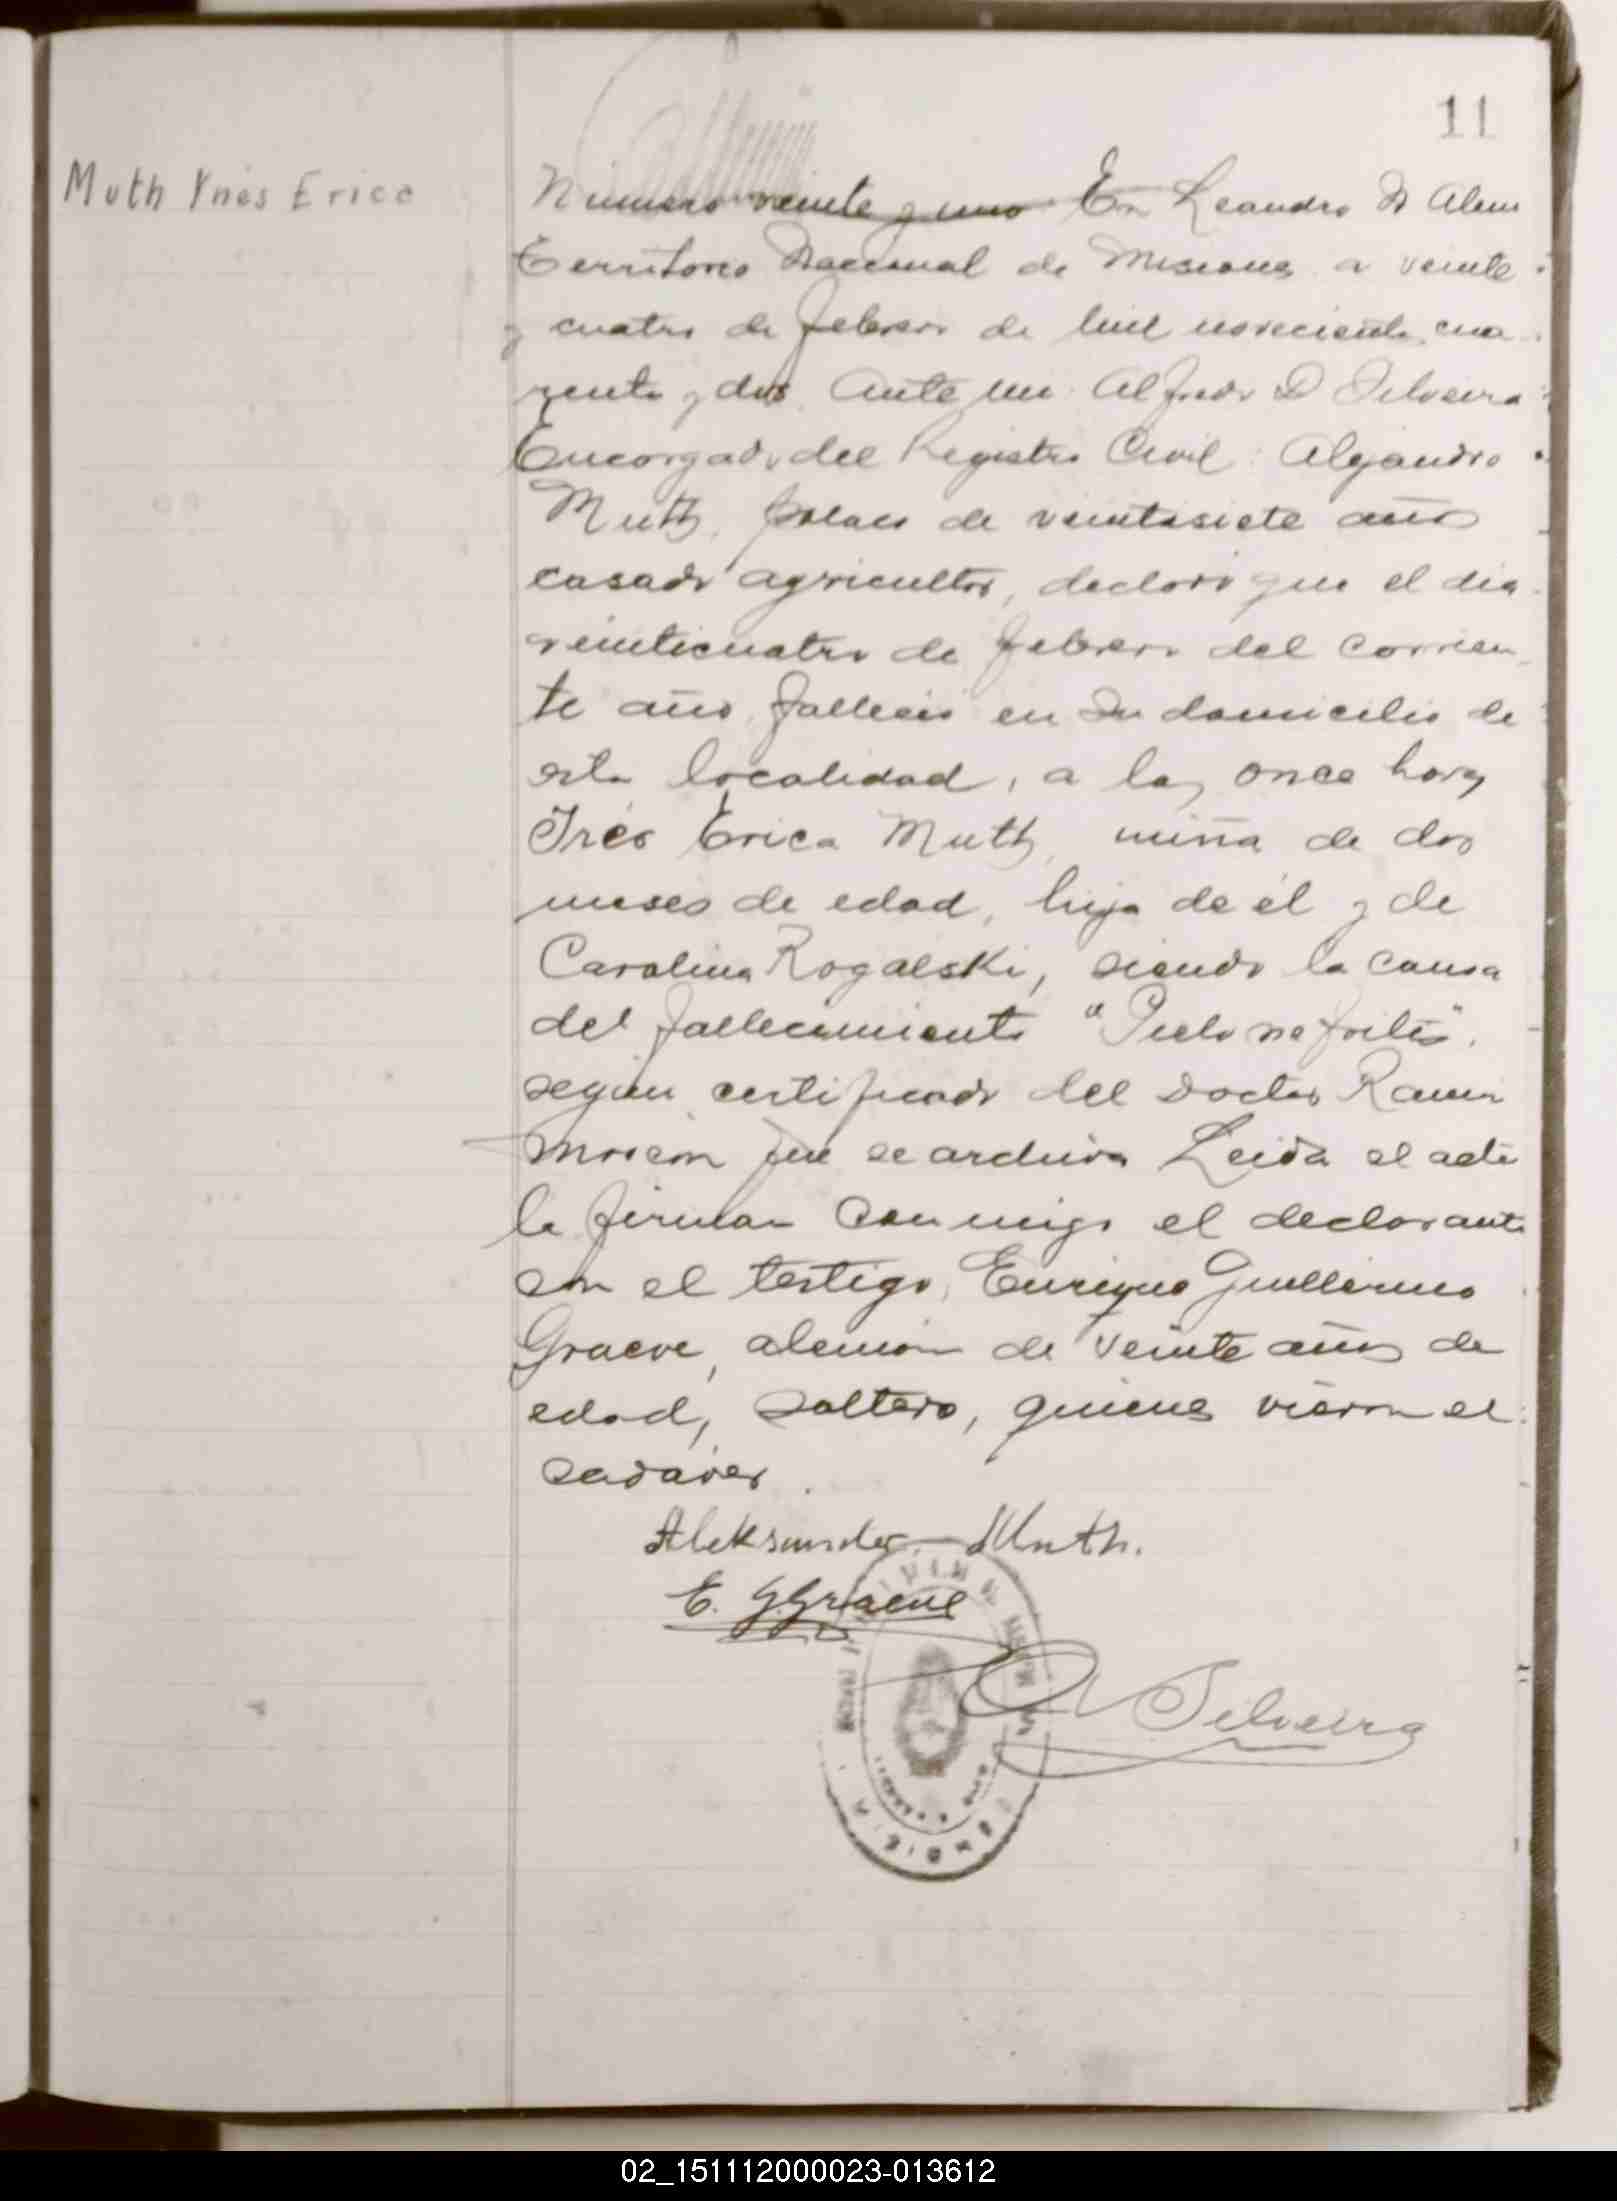 11
Muth Ynés Erica
Número veinte y uno En Leandro N Alem
Territorio Nacional de Misiones a veinte
y cuatro de febrero de mil novecientos cua
renta y dos. Ante mi Alfredo D Silveira
Encargado del Registro Civil: Alejandro
Muth, polaco de veintisiete años
casado agricultor, declaró que el dia
veinticuatro de febrero del corrien
te año falleció en su domicilio de
esta localidad, a las once horas
Inés Erica Muth, niña de dos
meses de edad, hija de él y de
Carolina Rogalski, siendo la causa
del fallecimiento "Pielo nefritis",
según certificado del Doctor Ramón
que se archiva Leida el acta
la firman conmigo el declarante
con el testigo, Enrique Guillermo
Graeve, alemán de veinte años de
edad, soltero, quienes vieron el
cadáver.
Aleksander Muth.
E. G. Graeve
Silveira
02_151112000023-013612